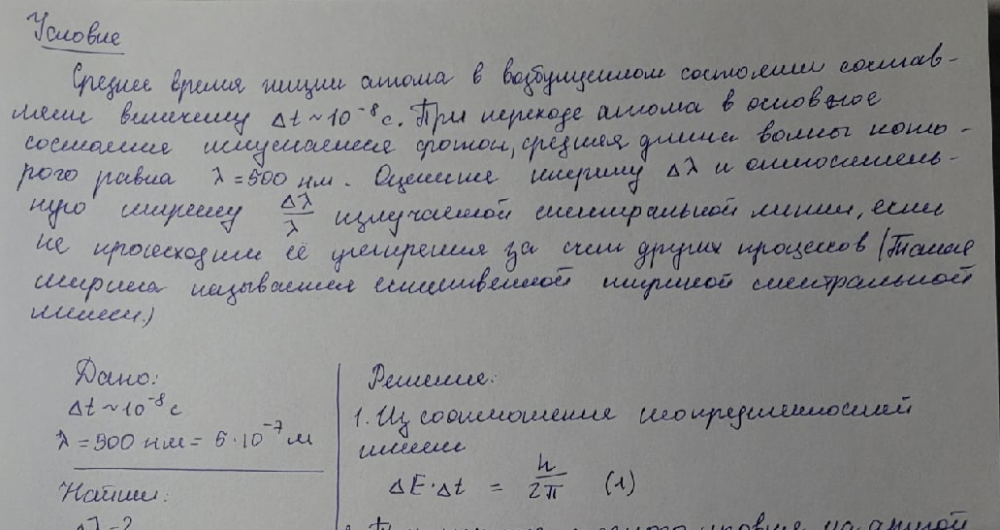 Условие
Среднее время жизни атома в возбужденном состоянии состав-
ляет величину Δt ~ 10⁻⁸ с. При переходе атома в основное
состояние испускается фотон, средняя длина волны кото-
рого равна λ = 500 нм. Оцените ширину Δλ и относитель-
ную ширину Δλ/λ излучаемой спектральной линии, если
не происходит её уширения за счет других процессов (Такая
ширина называется естественной шириной спектральной
линии.)
Дано:
Δt ~ 10⁻⁸ с
λ = 500 нм = 5·10⁻⁷ м
Найти:
Δλ - ?
Решение:
1. Из соотношения неопределенностей
имеем
ΔE·Δt = h/2π (1)